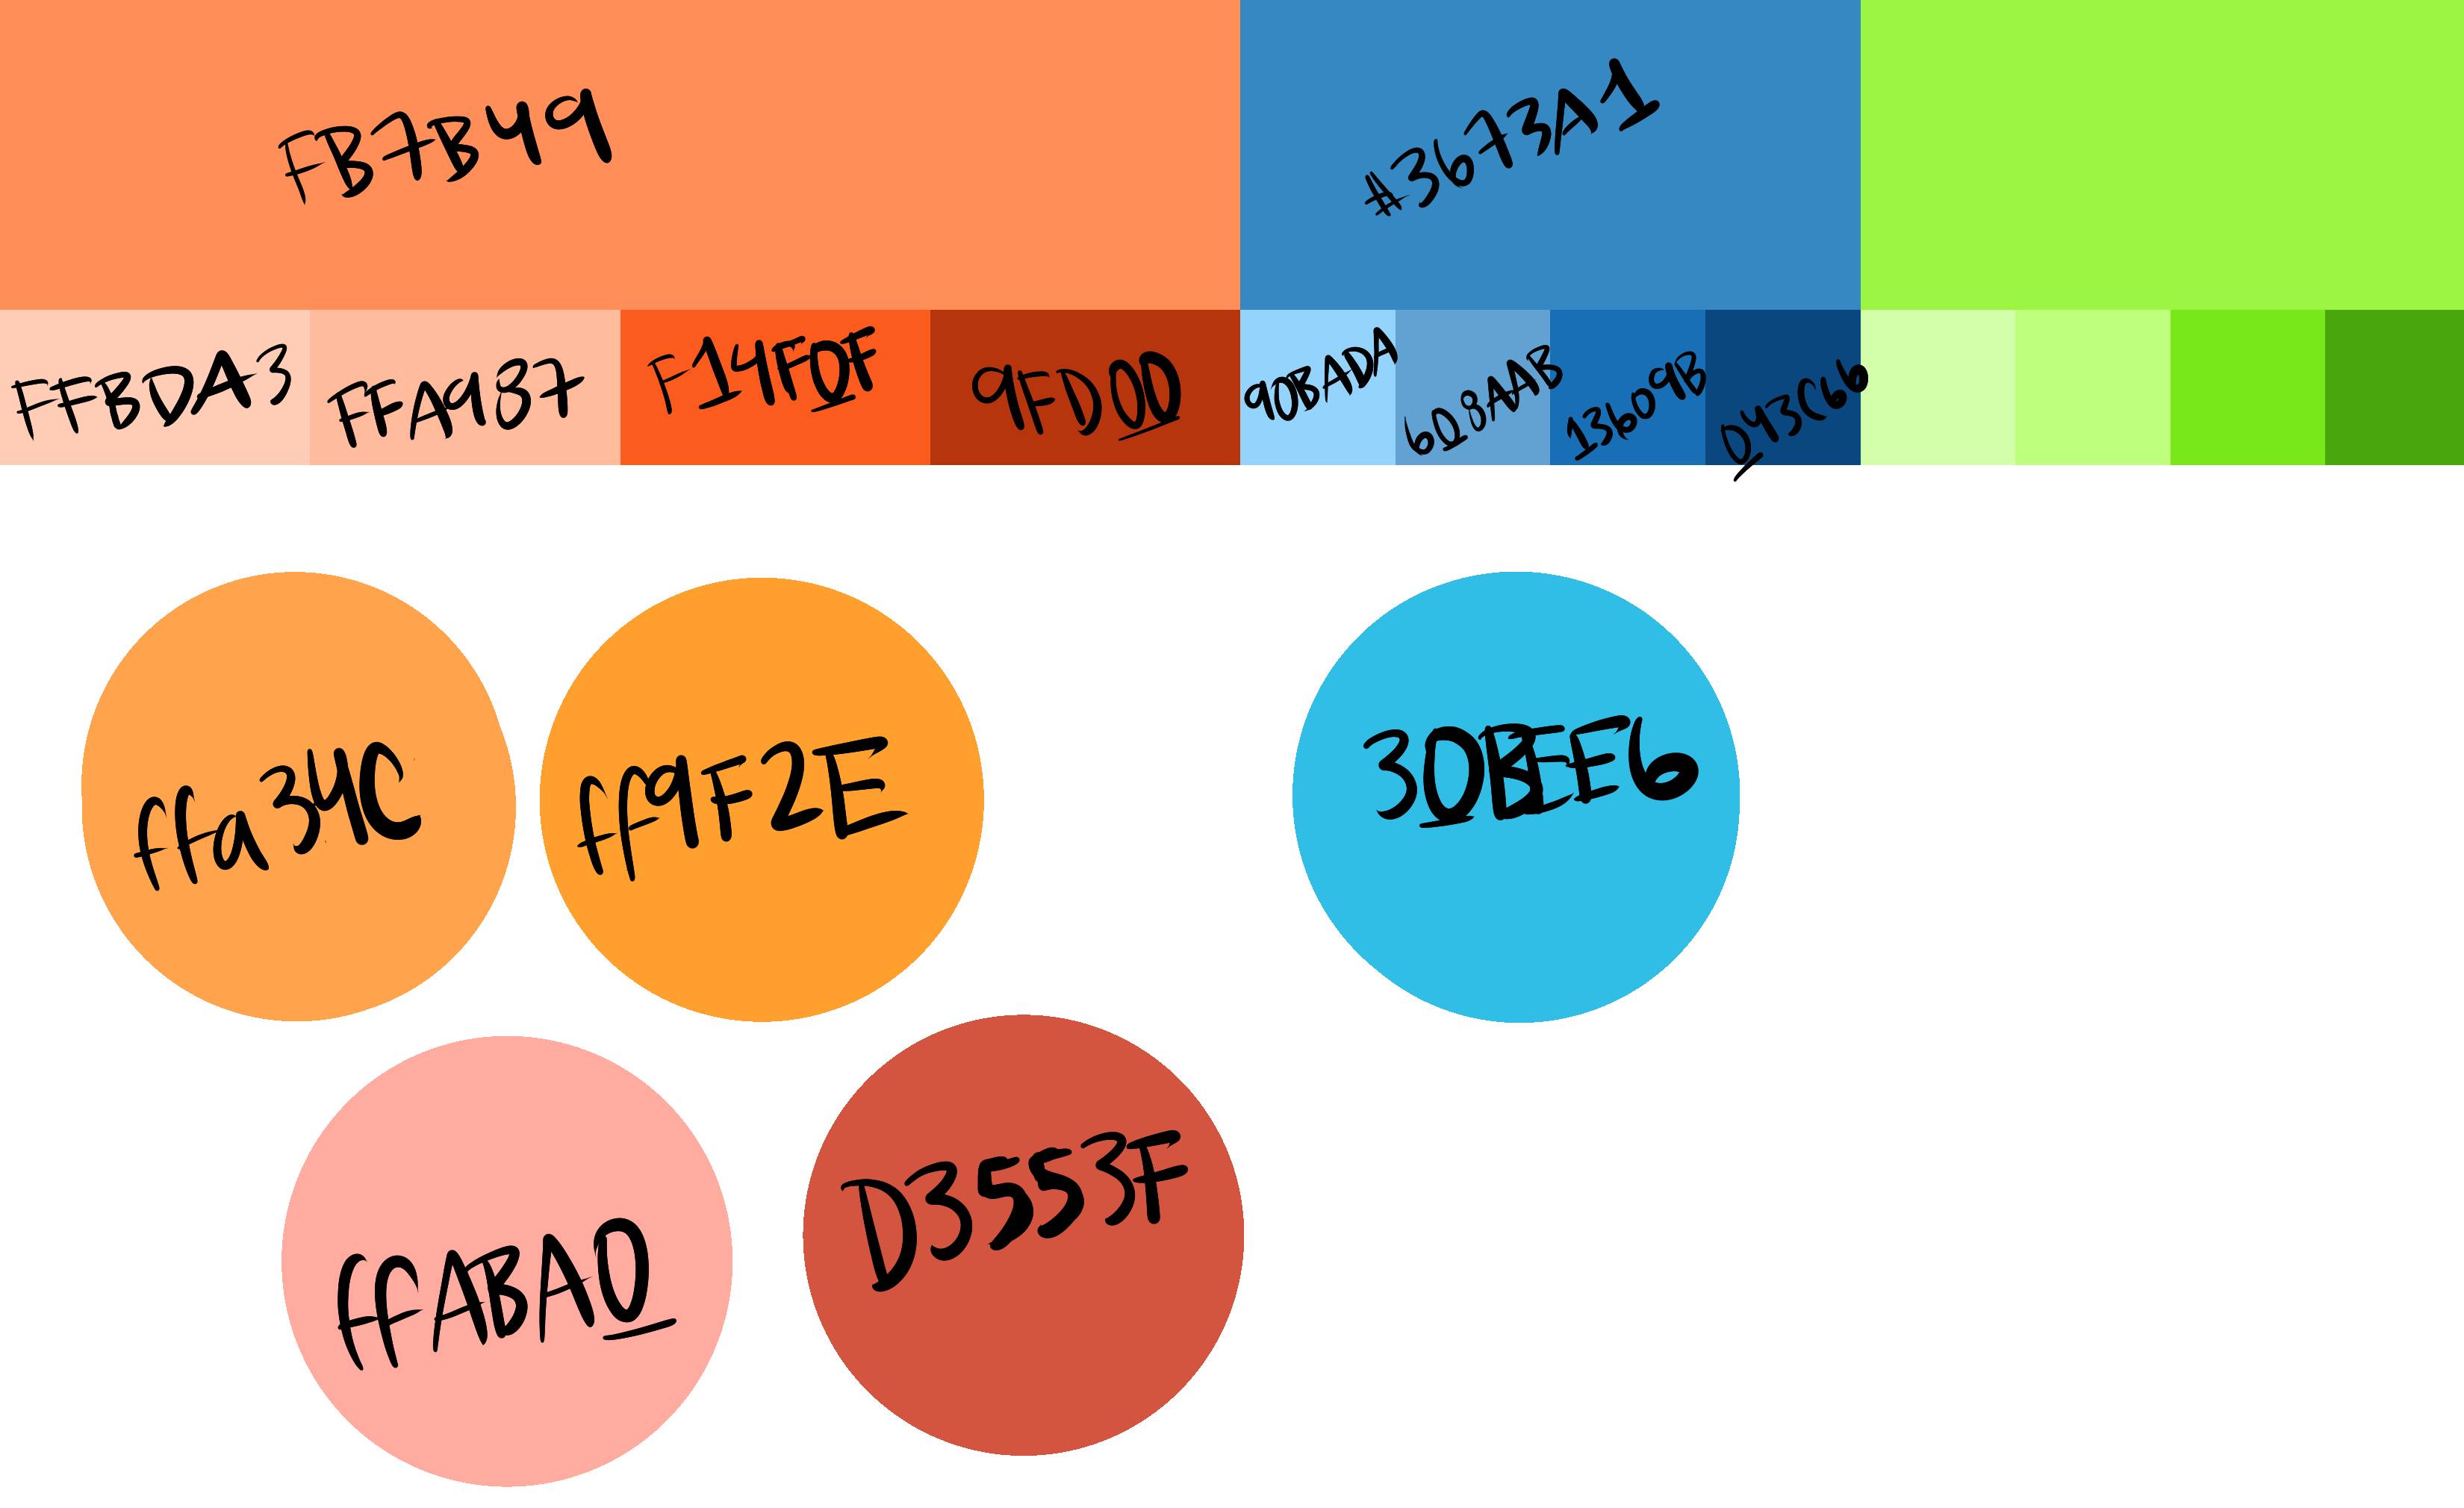 FB7B49
#3673A1
FFBDA3
FFA987
F14F0F
9FD00
90BADA
608AAB
13609B
0F3C66
ffa34C
ff9F2E
30BEE6
ffABA0
D3553F